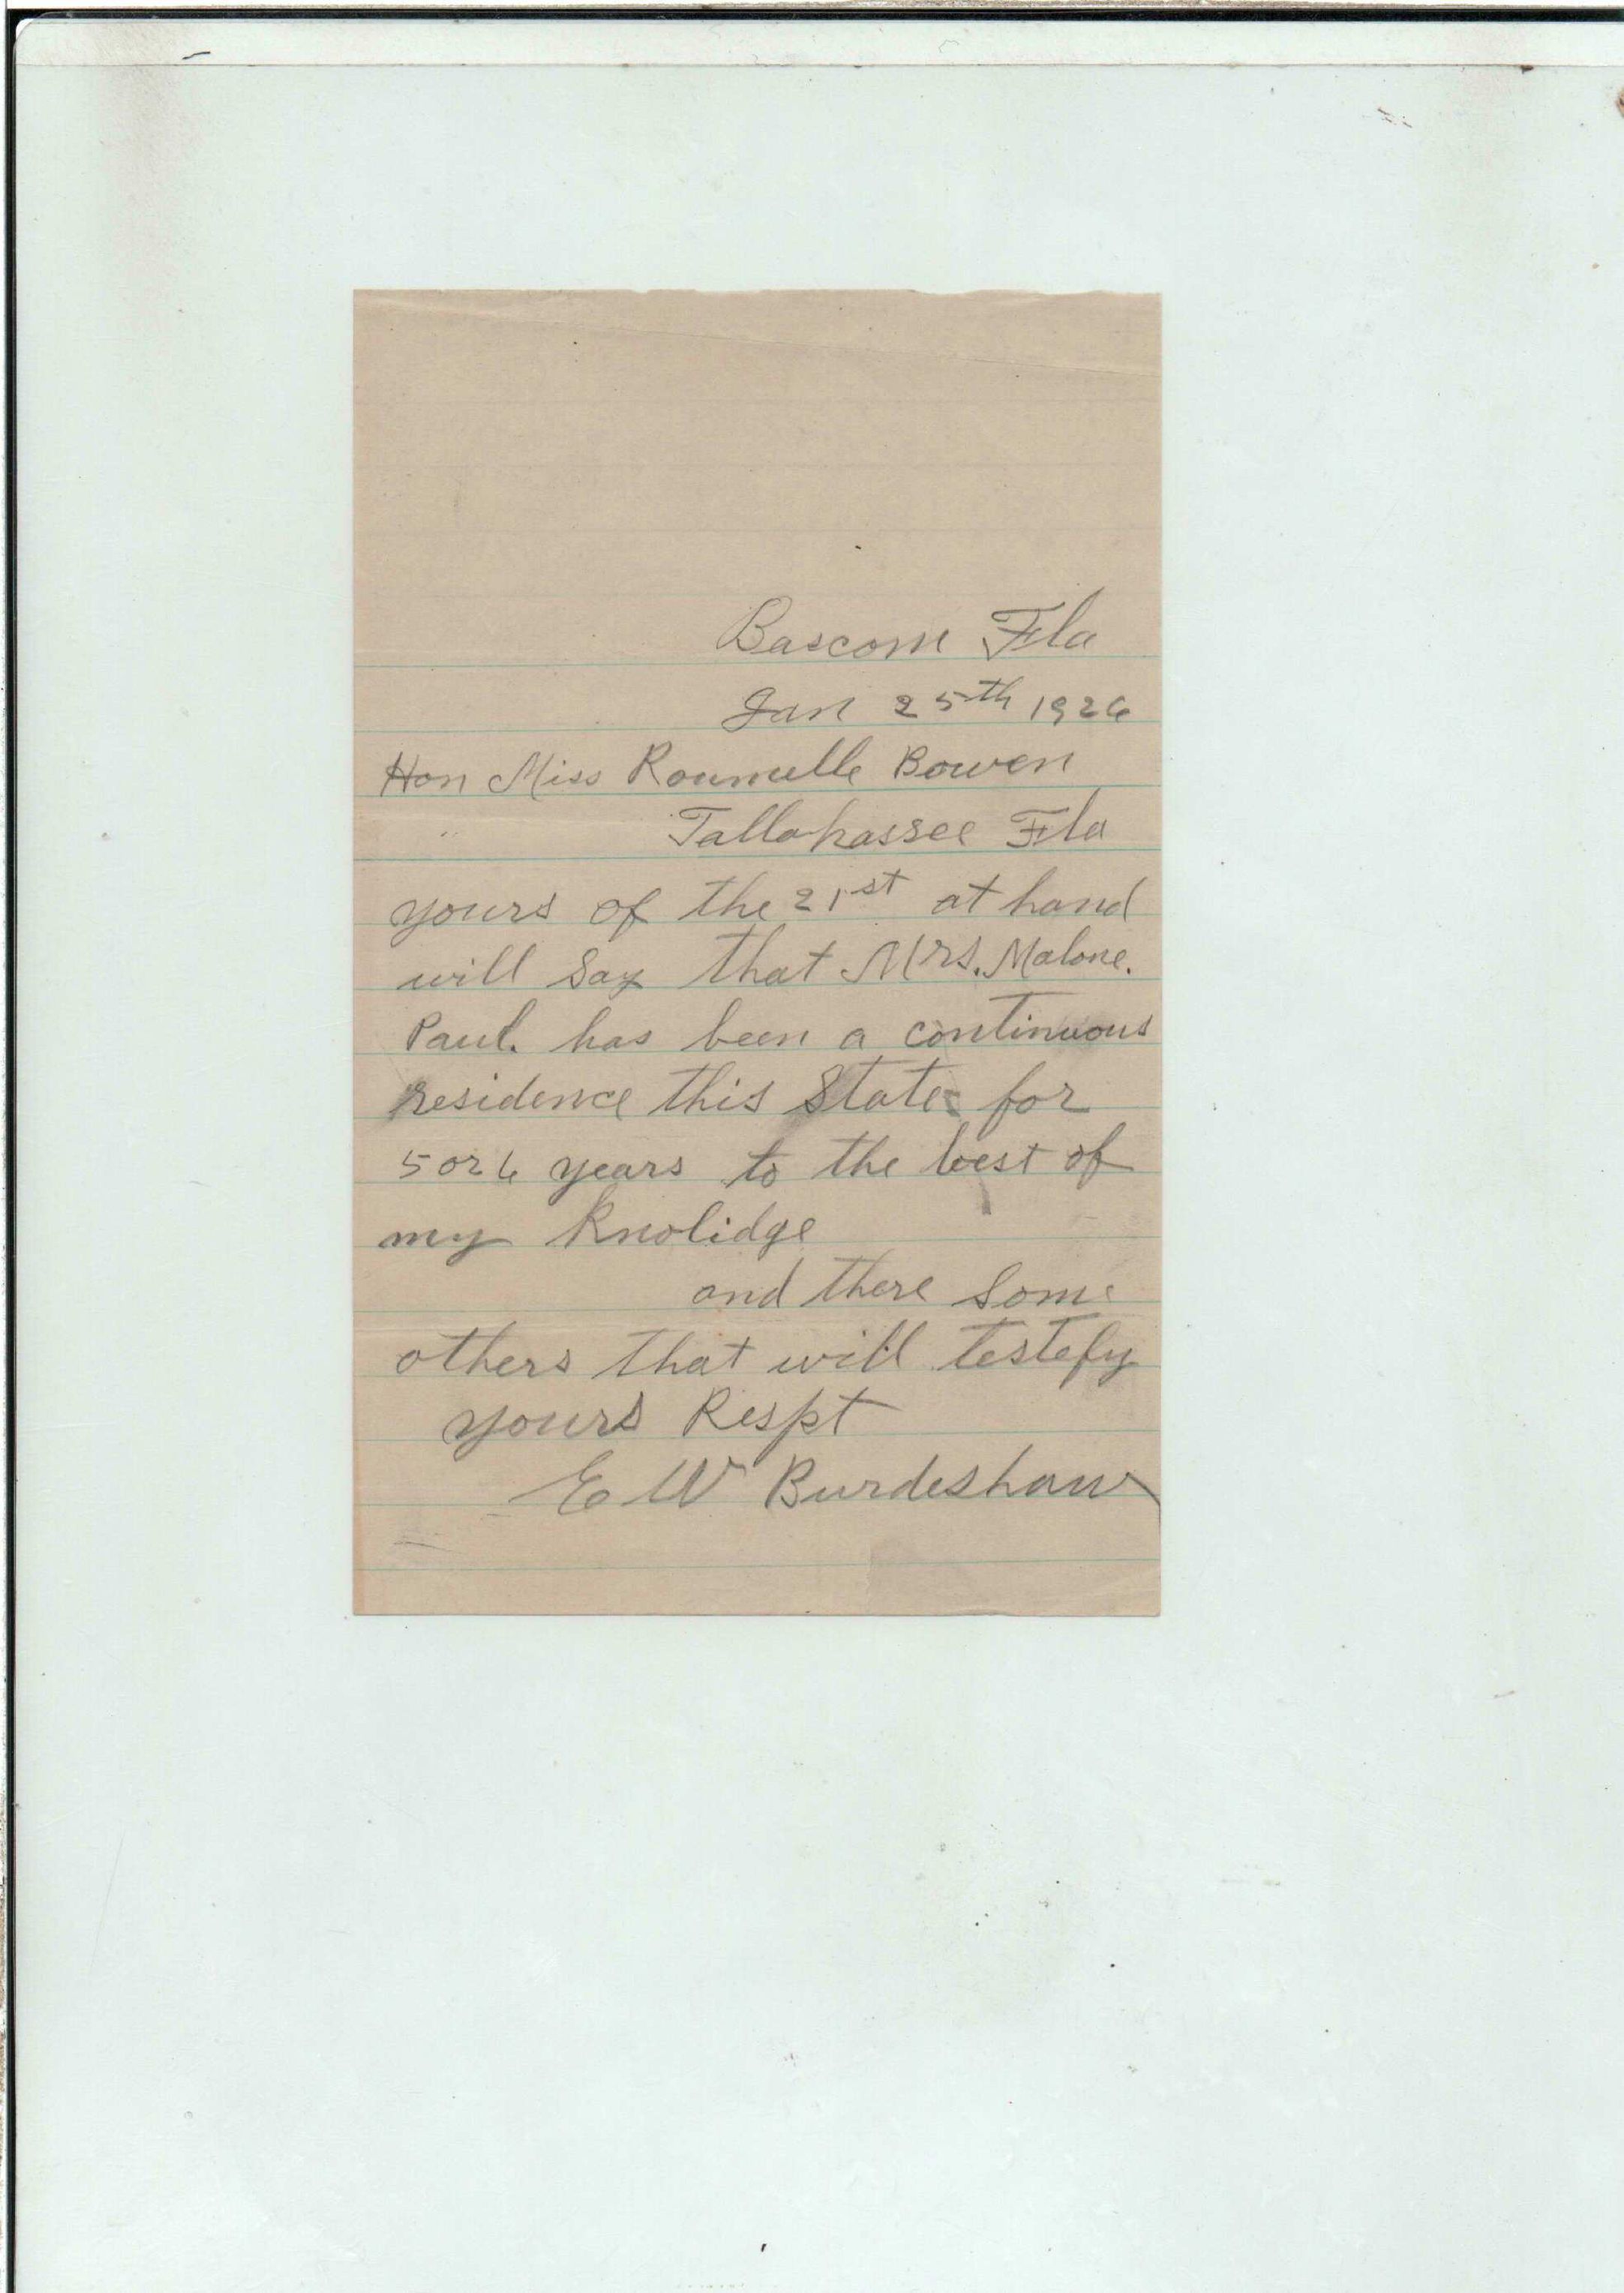 Bascom Fla
Jan 25th 1926
Hon Miss Roumelle Bowen
Tallahassee Fla
yours of the 21st at hand
will Say that Mrs. Malone.
Paul. has been a continuous
residence this State for
5 or 6 years to the best of
my Knolidge
and there Some
others that will testefy
yours Respt
E W Burdeshaw